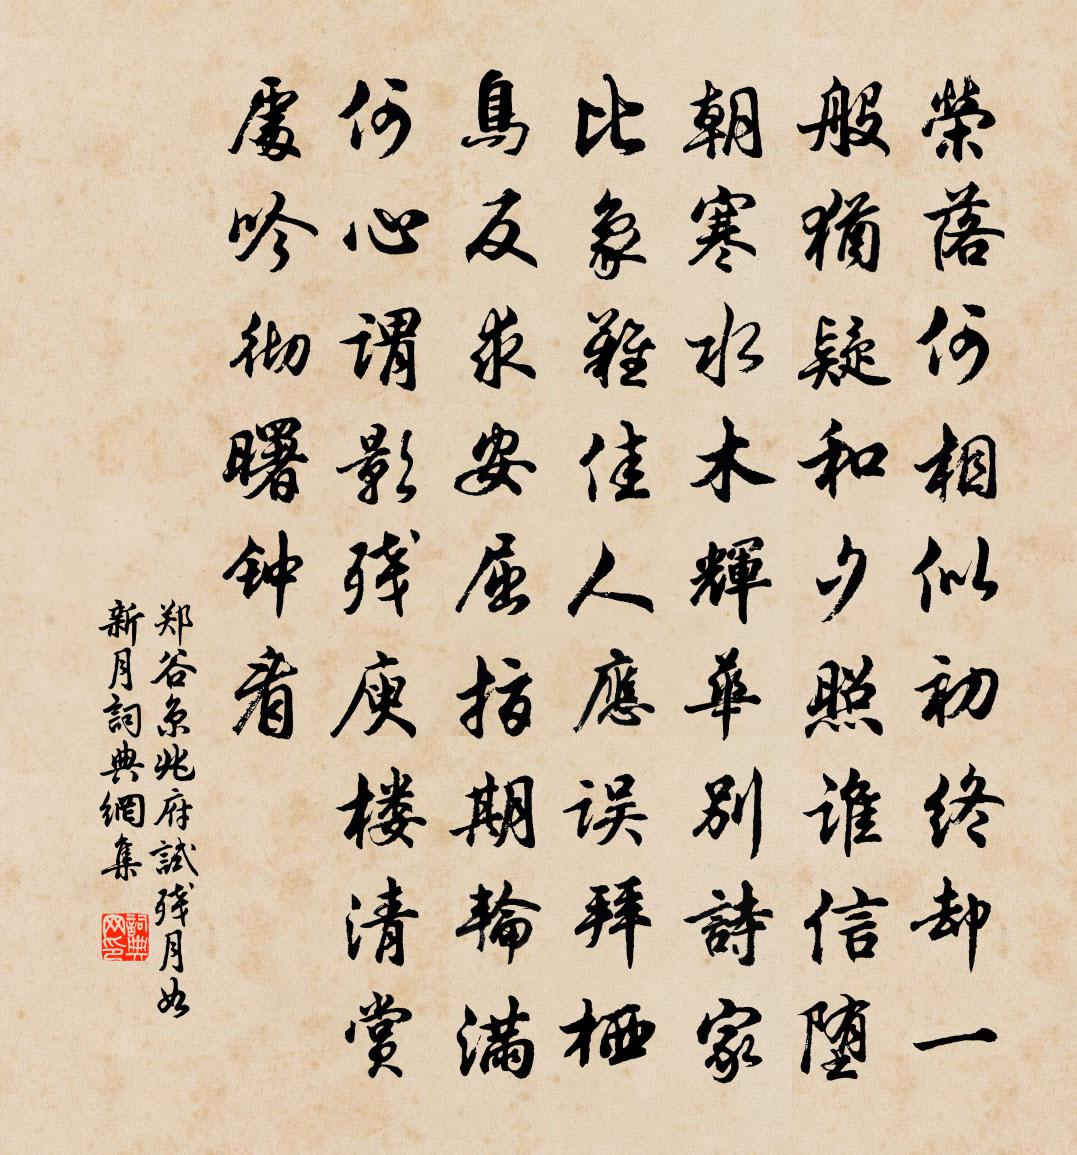 榮落何相似初終却一
般猶疑和夕照誰信堕
朝寒水木輝華別詩家
比象難佳人應误拜栖
鳥反求安屈指期輪滿
何心謂影残庾楼清賞
處吟彻曙钟看
郑谷京兆府試残月如
新月詞典網集
詞典网印